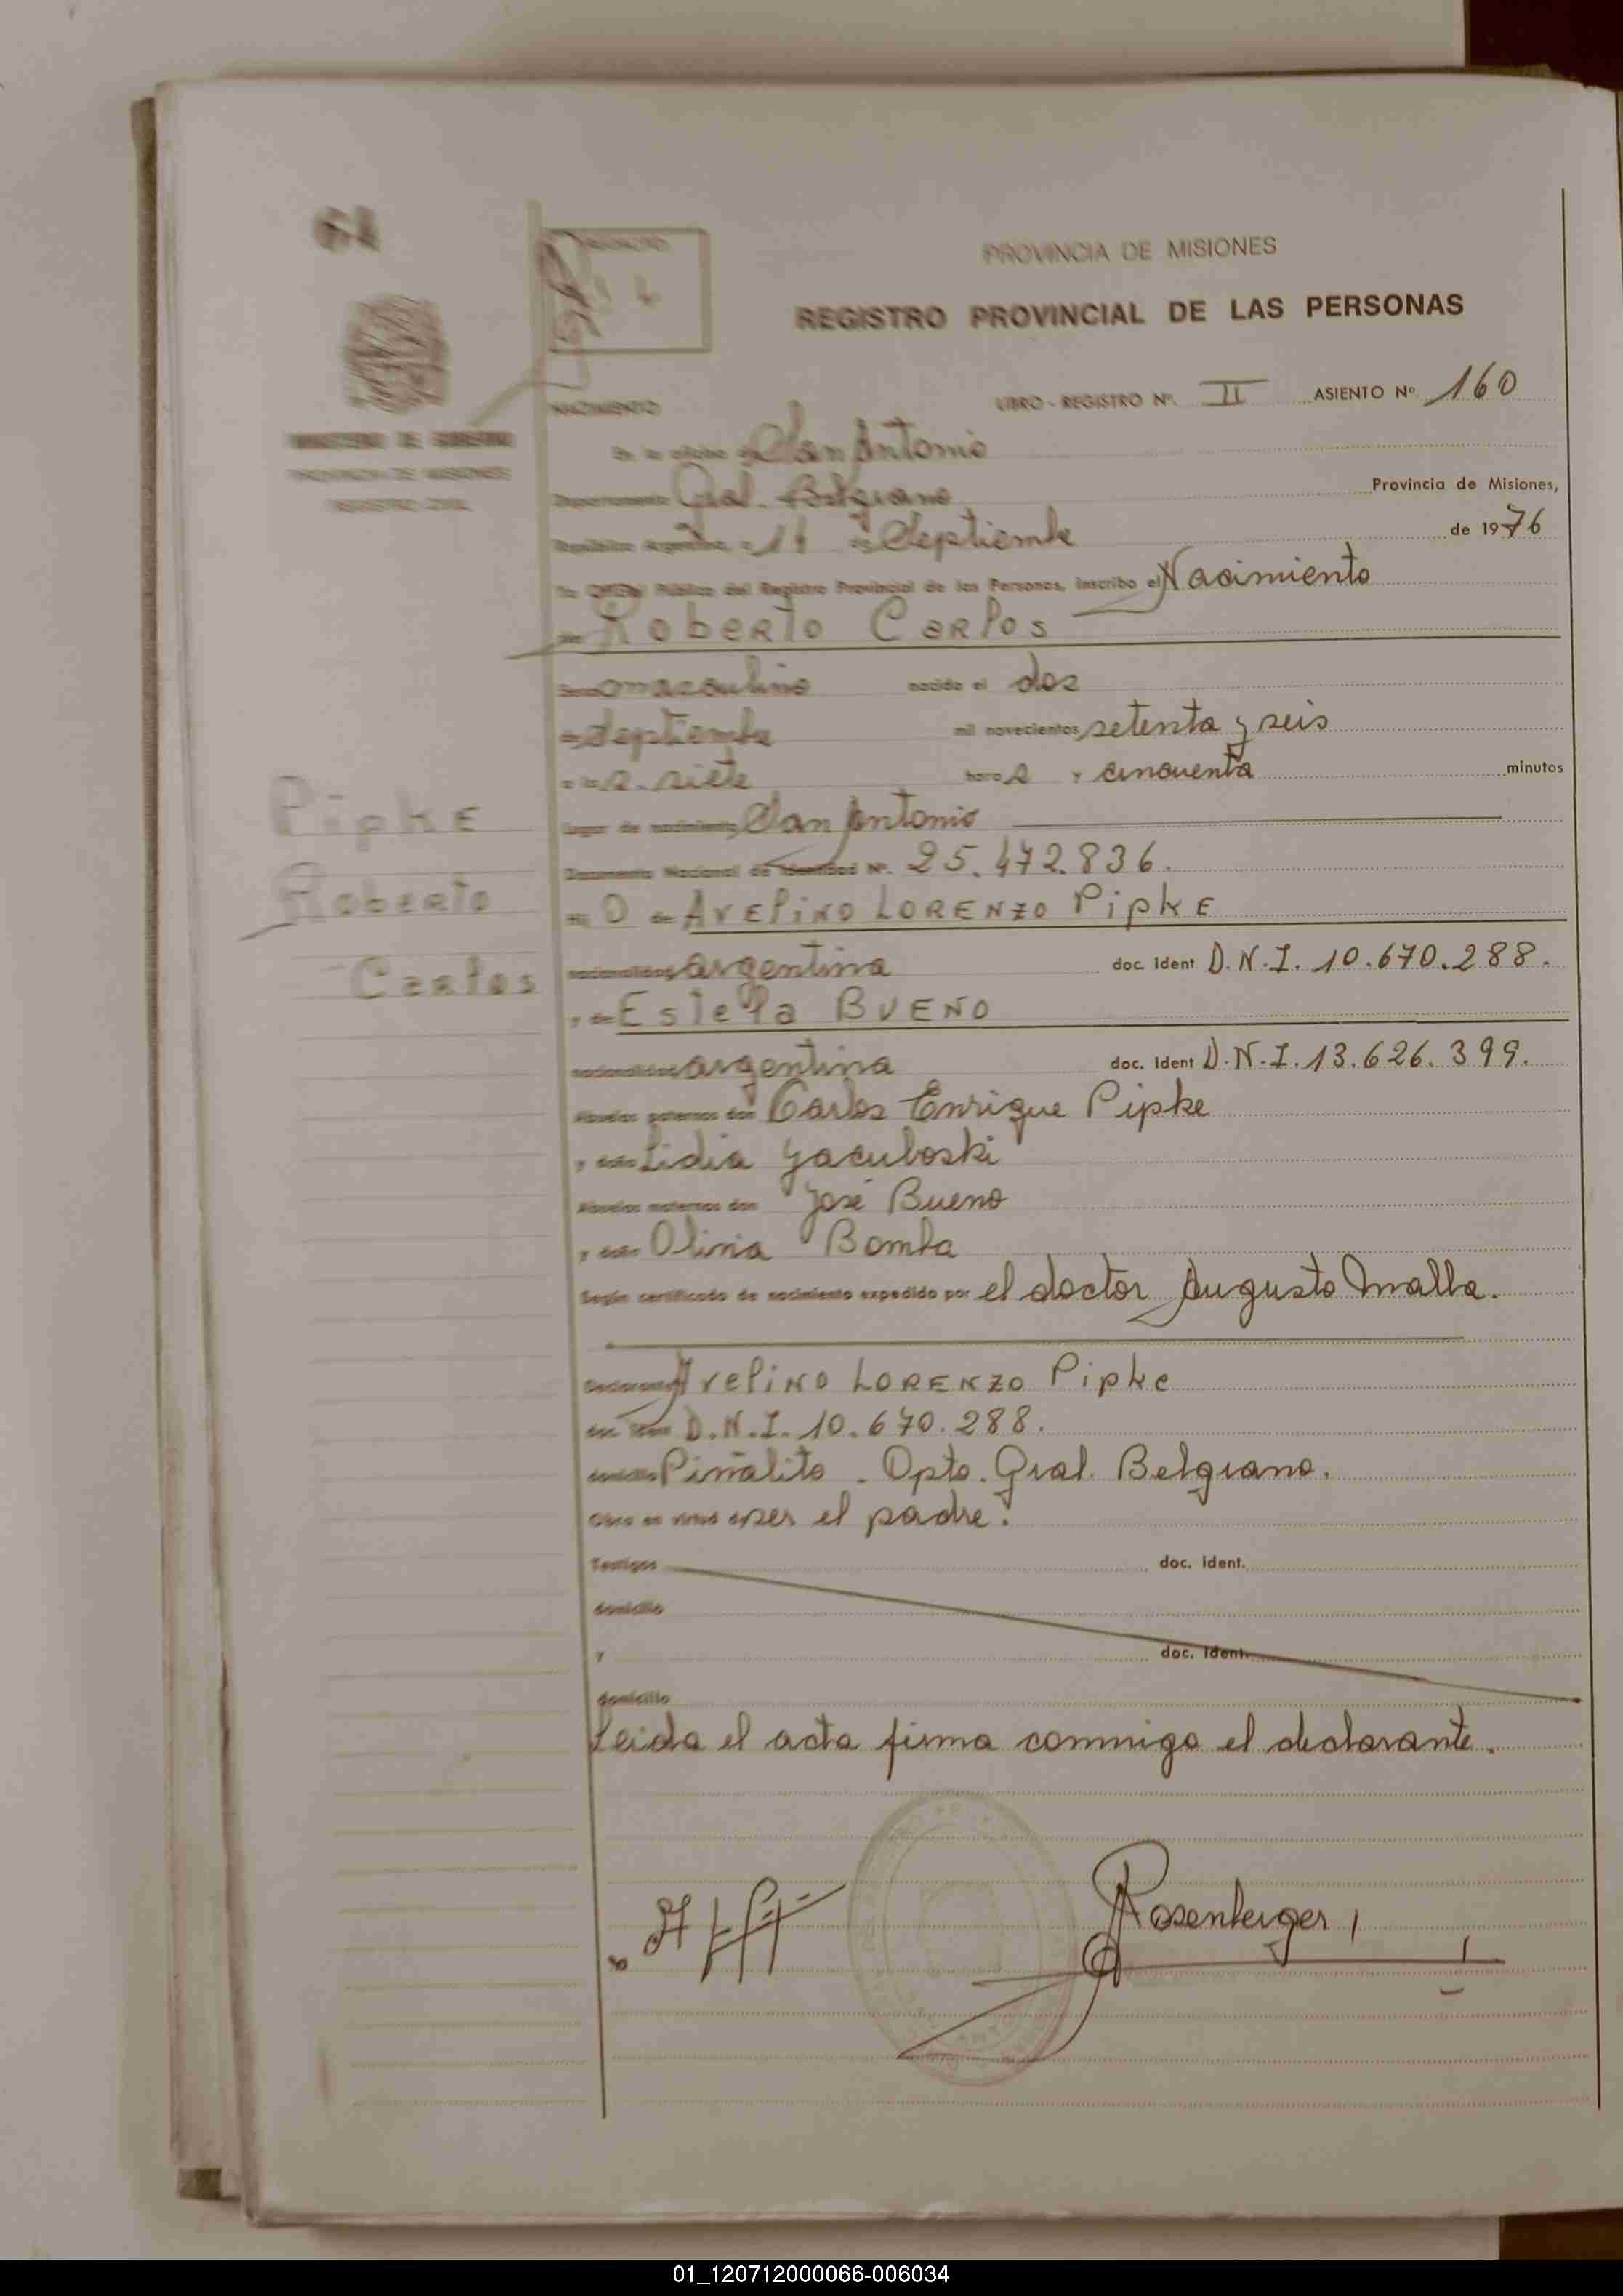 61
PROVINCIA DE MISIONES
REGISTRO PROVINCIAL DE LAS PERSONAS
NACIMIENTO LIBRO - REGISTRO Nº. II ASIENTO Nº. 160
MINISTERIO DE GOBIERNO
PROVINCIA DE MISIONES
REGISTRO CIVIL
En la oficina de San Antonio
Departamento Gral. Belgrano Provincia de Misiones,
República Argentina, a de Septiembre de 1976
Yo Oficial Público del Registro Provincial de las Personas, inscribo el Nacimiento
de Roberto Carlos
Sexo masculino nacido el dos
de Septiembre mil novecientos setenta y seis
a las siete horas y cincuenta minutos
Lugar de nacimiento San Antonio
Documento Nacional de Identidad Nº. 25.472.836.
Hij O de Avelino LORENZO Pipke
nacionalidad argentina doc. ident D.N.I. 10.670.288.
y de Estela BUENO
nacionalidad argentina doc. ident D.N.I. 13.626.399.
Abuelos paternos don Carlos Enrique Pipke
y doña Lidia Yacuboski
Abuelos maternos don José Bueno
y doña Olivia Bomba
Según certificado de nacimiento expedido por el doctor Augusto Malla.
Declarante Avelino LORENZO Pipke
doc. ident D.N.I. 10.670.288.
domicilio Piñalito - Dpto. Gral. Belgrano.
Obra en virtud de ser el padre.
Testigos doc. ident.
domicilio
y doc. ident.
domicilio
Leida el acta firma conmigo el declarante.
Rosenberger
Pipke
Roberto
Carlos
01_120712000066-006034